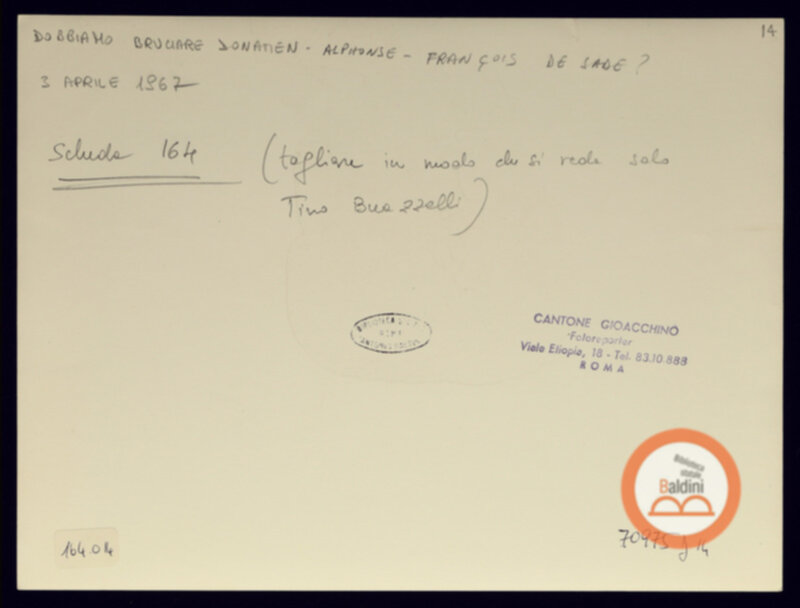 14
DOBBIAMO BRUCIARE DONATIEN - ALPHONSE - FRANÇOIS DE SADE?
3 APRILE 1967
Scheda 164 (tagliare in modo che si veda solo
Tino Buazzelli)
BIBLIOTECA
ROMA
CANTONE GIOACCHINO
Fotoreporter
Viale Etiopia, 18 - Tel. 83.10.888
ROMA
Biblioteca
statale
Baldini
164.014
70975 J 14